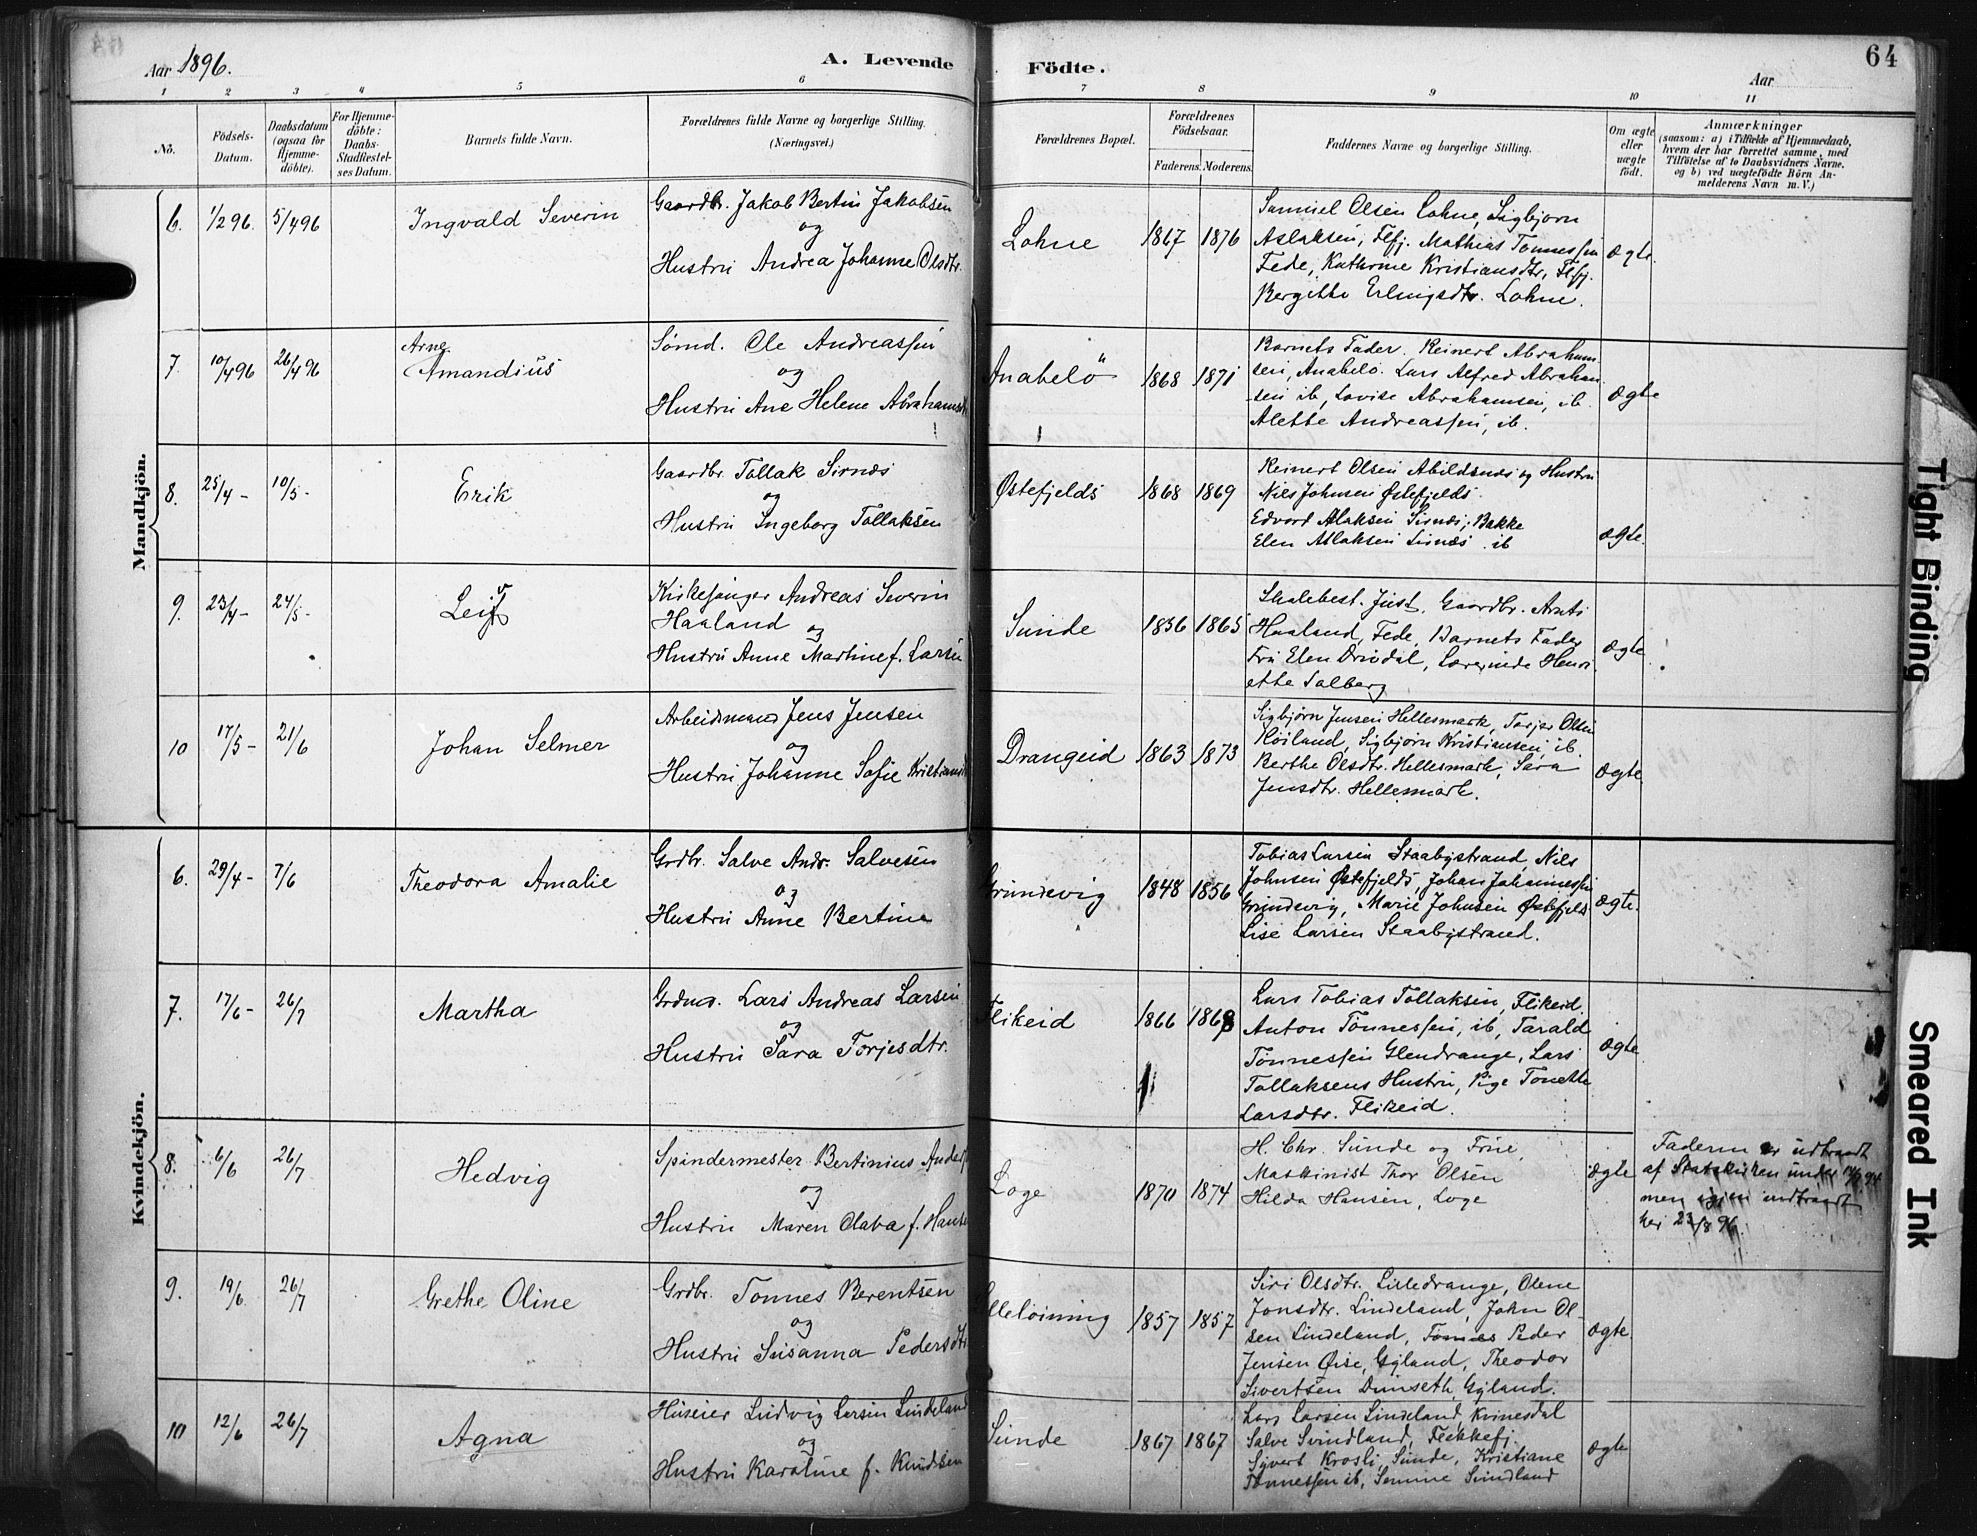 Aar 1896.
A. Levende
Födte.
64
Aar
1 2 3 4 5 6 7 8 9 10 11
No.
Födsels-
Datum.
Daabsdatum
(ogsaa for
Hjemme-
döbte).
For Hjemme-
döbte:
Daabs-
Stadfæstel-
ses Datum.
Barnets fulde Navn.
Forældrenes fulde Navne og borgerlige Stilling.
(Næringsvei.)
Forældrenes Bopæl.
Forældrenes
Födselsaar.
Faderens. Moderens.
Faddernes Navne og borgerlige Stilling.
Om ægte
eller
uægte
födt.
Anmærkninger
(saasom: a) i Tilfælde af Hjemmedaab,
hvem der har forrettet samme, med
Tilföielse af to Daabsvidners Navne,
og b) ved uægtefödte Börn An-
melderens Navn m. V.)
Mandkjön.
6. 1/2 96. 5/4 96 Ingvald Severin
Gaardbr. Jakob Bertin Jakobsen
og
Hustru Andrea Johanne Olsdtr.
Lohne 1867 1876
Samuel Olsen Lohne, Sigbjørn
Aslaksen, Flfj. Mathias Tønnessen
Fede, Kathrine Kristiansdtr, Flfj.
Bergitte Erlingsdtr. Lohne.
ægte.
7. 10/4 96 26/4 96 Arne
Amandius
Sömd. Ole Andreassen
og
Hustru Ane Helene Abrahamsdtr
Anabelö 1868 1871
Barnets Fader. Reinert Abraham-
sen, Anabelö. Lars Alfred Abraham-
sen ib, Lovise Abrahamsen, ib.
Alette Andreassen, ib.
ægte
8. 25/4 - 10/5 - Erik
Gaardbr. Tollak Sirnæs
og
Hustru Ingeborg Tollaksen
Østefjelds 1868 1869
Reinert Olsen Abildsnæs og Hustru
Nils Johnsen Østefjelds
Edvard Aslaksen Sirnæs, Bakke
Elen Aslaksen Sirnæs ib
ægte.
9. 23/4 - 24/5 - Leif
Kirkesanger Andreas Severin
Haaland og
Hustru Anne Martine f. Larsen
Sunde 1856 1865
Skolebest. Just, Gaardbr. Arnts
Haaland, Fede, Barnets Fader
Fru Elen Drivdal, Lærerinde Henri
ette Salberg
ægte
10 17/5 - 21/6 Johan Selmer
Arbeidsmand Jens Jensen
og
Hustru Johanne Sofie Kristiansdtr
Drangeid 1863 1873
Sigbjørn Jensen Hellesmark, Torjer Olsen
Høiland, Sigbjørn Kristiansen, ib
Berthe Olsdtr. Hellesmark, Sara
Jensdtr. Hellesmark.
ægte
Kvindekjön.
6. 29/4 - 7/6 Theodora Amalie
Grdbr. Salve Andr. Salvesen
og
Hustru Anne Bertine
Grundevig 1848 1856
Tobias Larsen Staabystrand, Nils
Johnsen Østefjelds, Johan Johannessen
Grundevig, Marie Johnsen Østefjelds
Lise Larsen Staabystrand.
ægte.
7. 17/6 - 26/7 Martha
Grdmd. Lars Andreas Larsen
og
Hustru Sara Torjesdtr.
Flikeid 1866 1868
Lars Tobias Tollaksen, Flikeid.
Anton Tønnessen, ib, Tarald
Tønnessen Glendrange, Lars
Tollaksens Hustru, Pige Tonette
Larsdtr. Flikeid.
ægte
8. 6/6 26/7 Hedvig
Spindermester Bertinius Anders
og
Hustru Maren Olava f. Hansen
Loge 1870 1874
H. Chr. Sunde og Frue,
Maskinist Thor Olsen
Hilda Hansen, Loge
ægte
Faderen er udtraadt
af Statskirken under
men igjen indtraadt
her 23/8 96.
9. 19/6 26/7 Grethe Oline
Grdbr. Tonnes Berentsen
og
Hustru Susanna Pedersdtr
Lilleløining 1857 1857
Siri Olsdtr. Lilledrange, Olene
Jonsdtr. Lindeland, John Ol-
sen Lindeland, Tønnes Peder
Jensen Øise, Gyland, Theodor
Sivertsen Dunseth, Gyland.
ægte
10 12/6 26/7 Agna
Huseier Ludvig Larsen Lindeland
og
Hustru Karoline f. Knudsen
Sunde 1867 1867
Lars Larsen Lindeland, Kvinesdal
Salve Svindland, Flekkefj
Syvert Krosli, Sunde, Kristiane
Tønnessen ib, Semine Svindland
ægte
Tight Binding
Smeared Ink